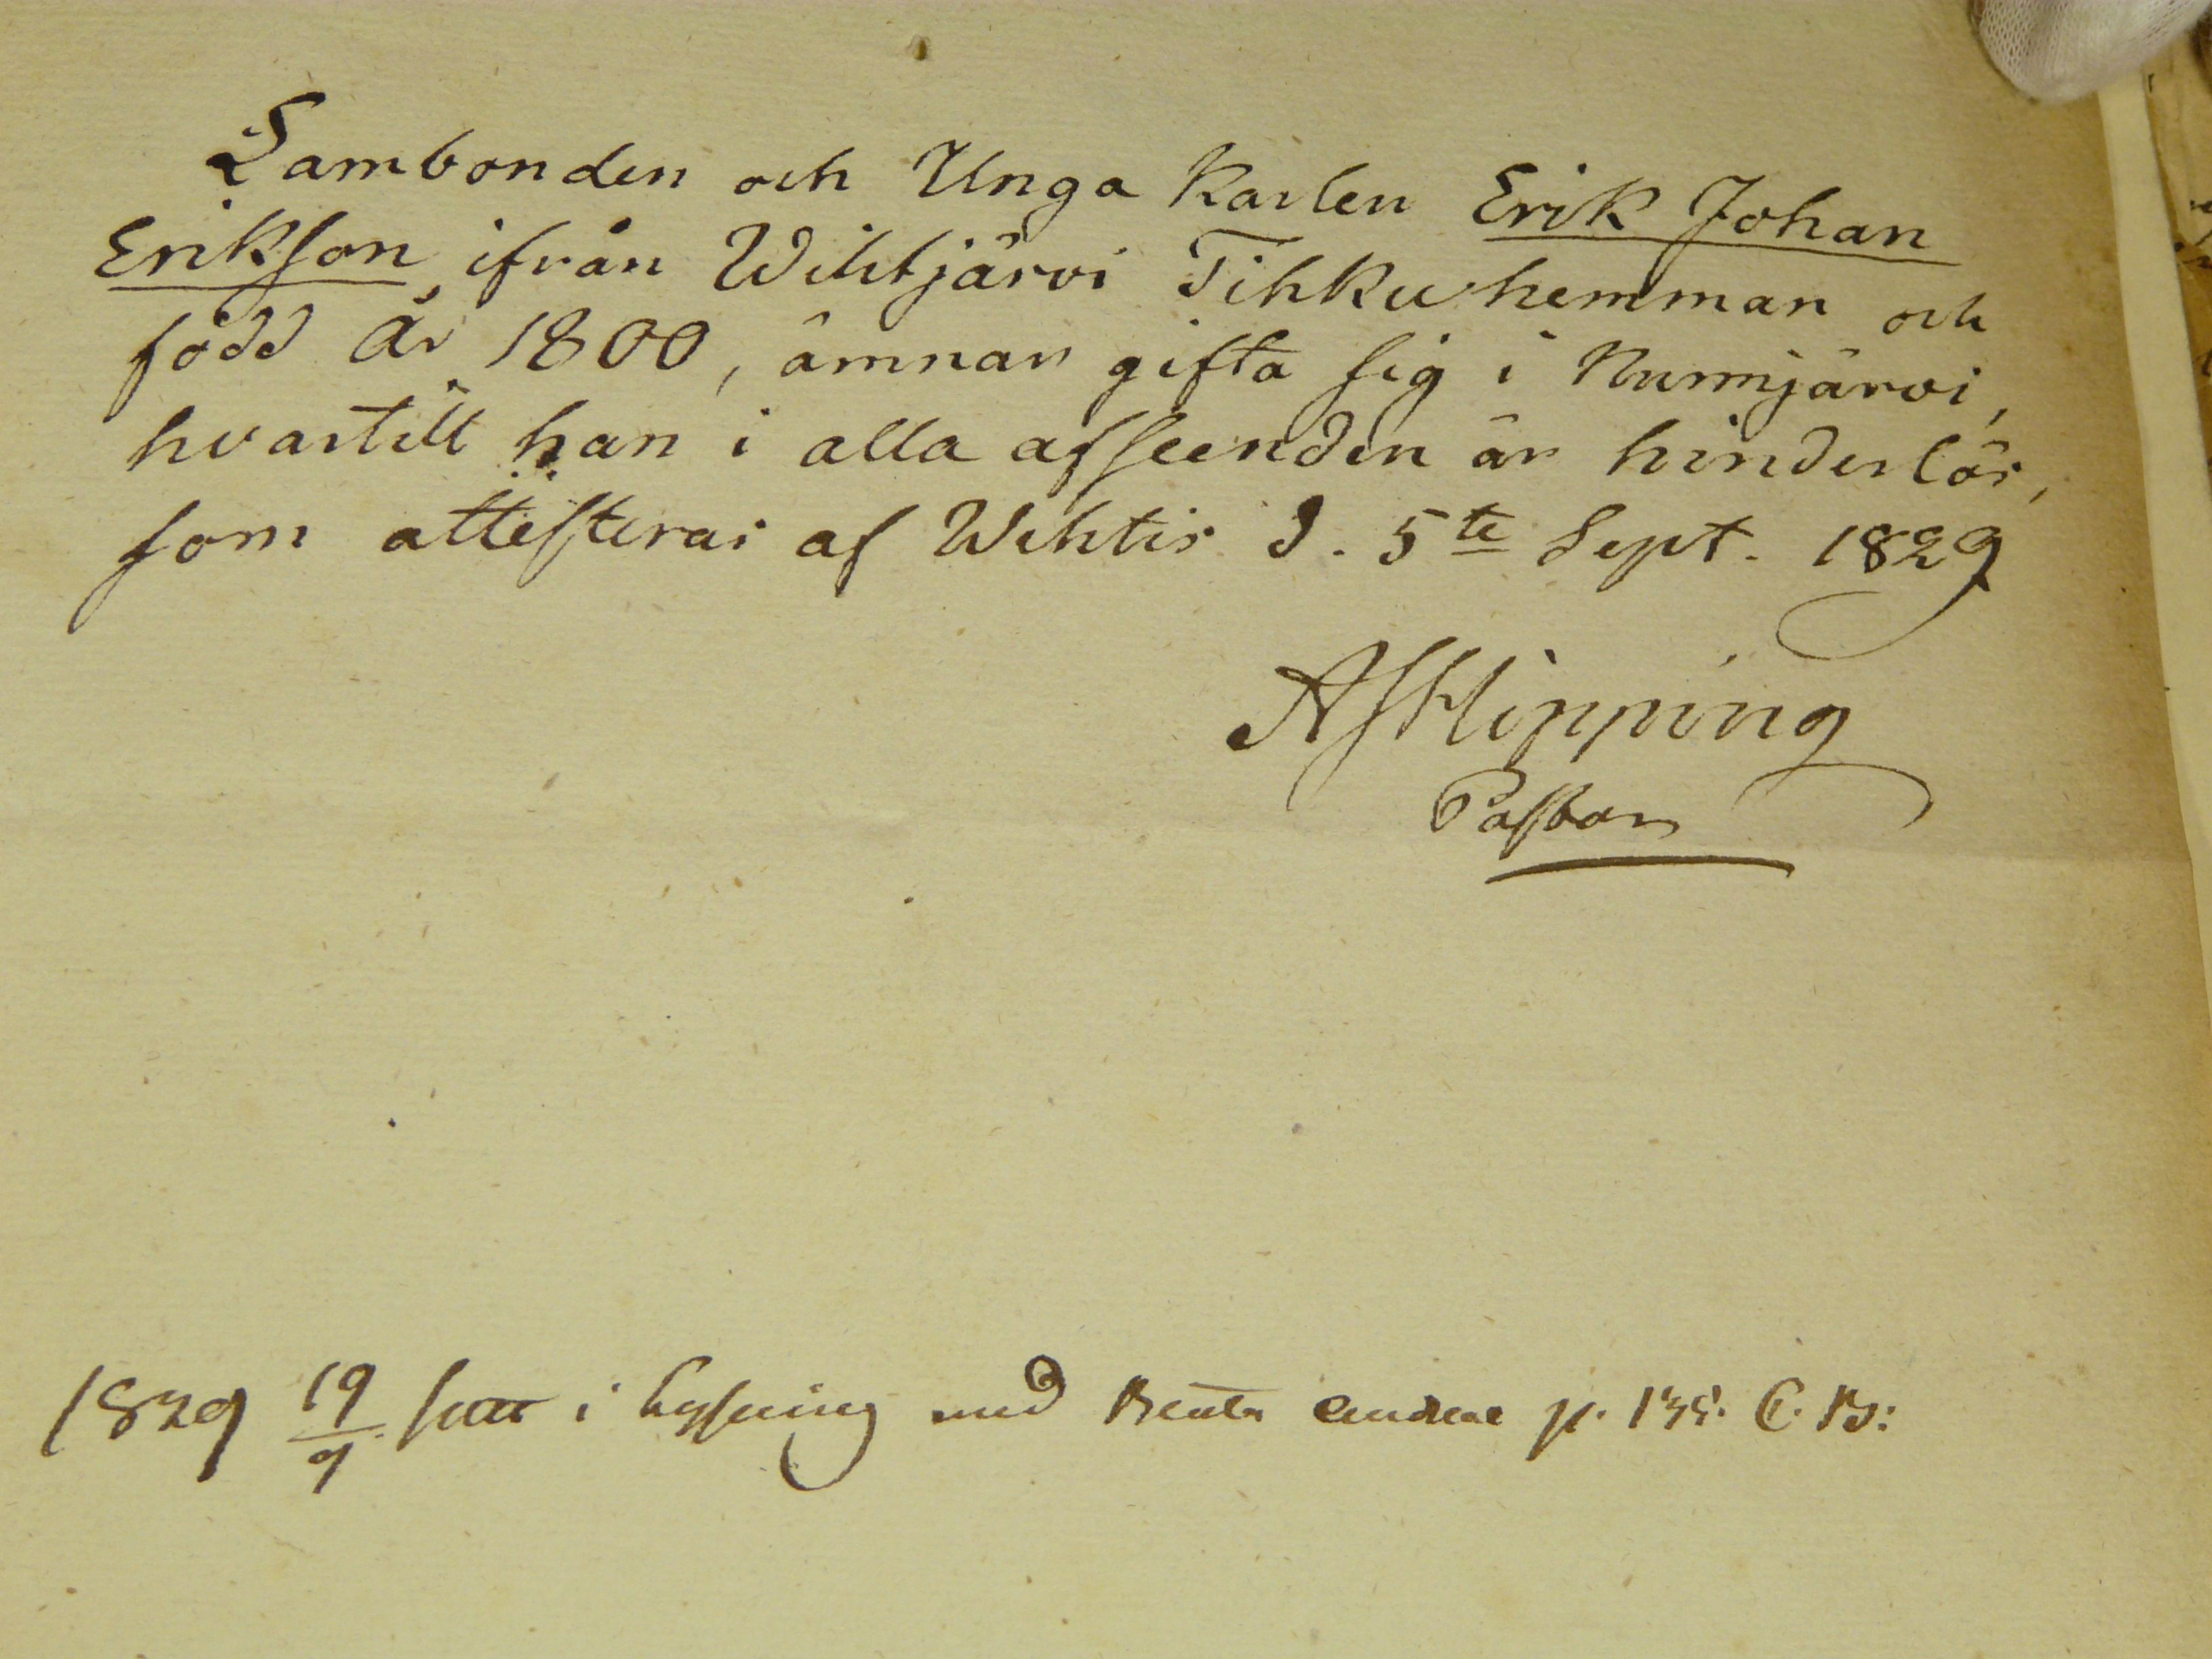 Sambonden och Unga Karlen Erik Johan
Erikson ifrån Wihtjärvi Tihku hemman och
född År 1800, ämnar gifta sig i Nurmijärvi,
hvartill han i alla afseenden är hinderlös,
som attesteras af Wihtis d. 5te Sept. 1829
AJHipping
Pastor
1829 19/9 i lysning med p. C. B: